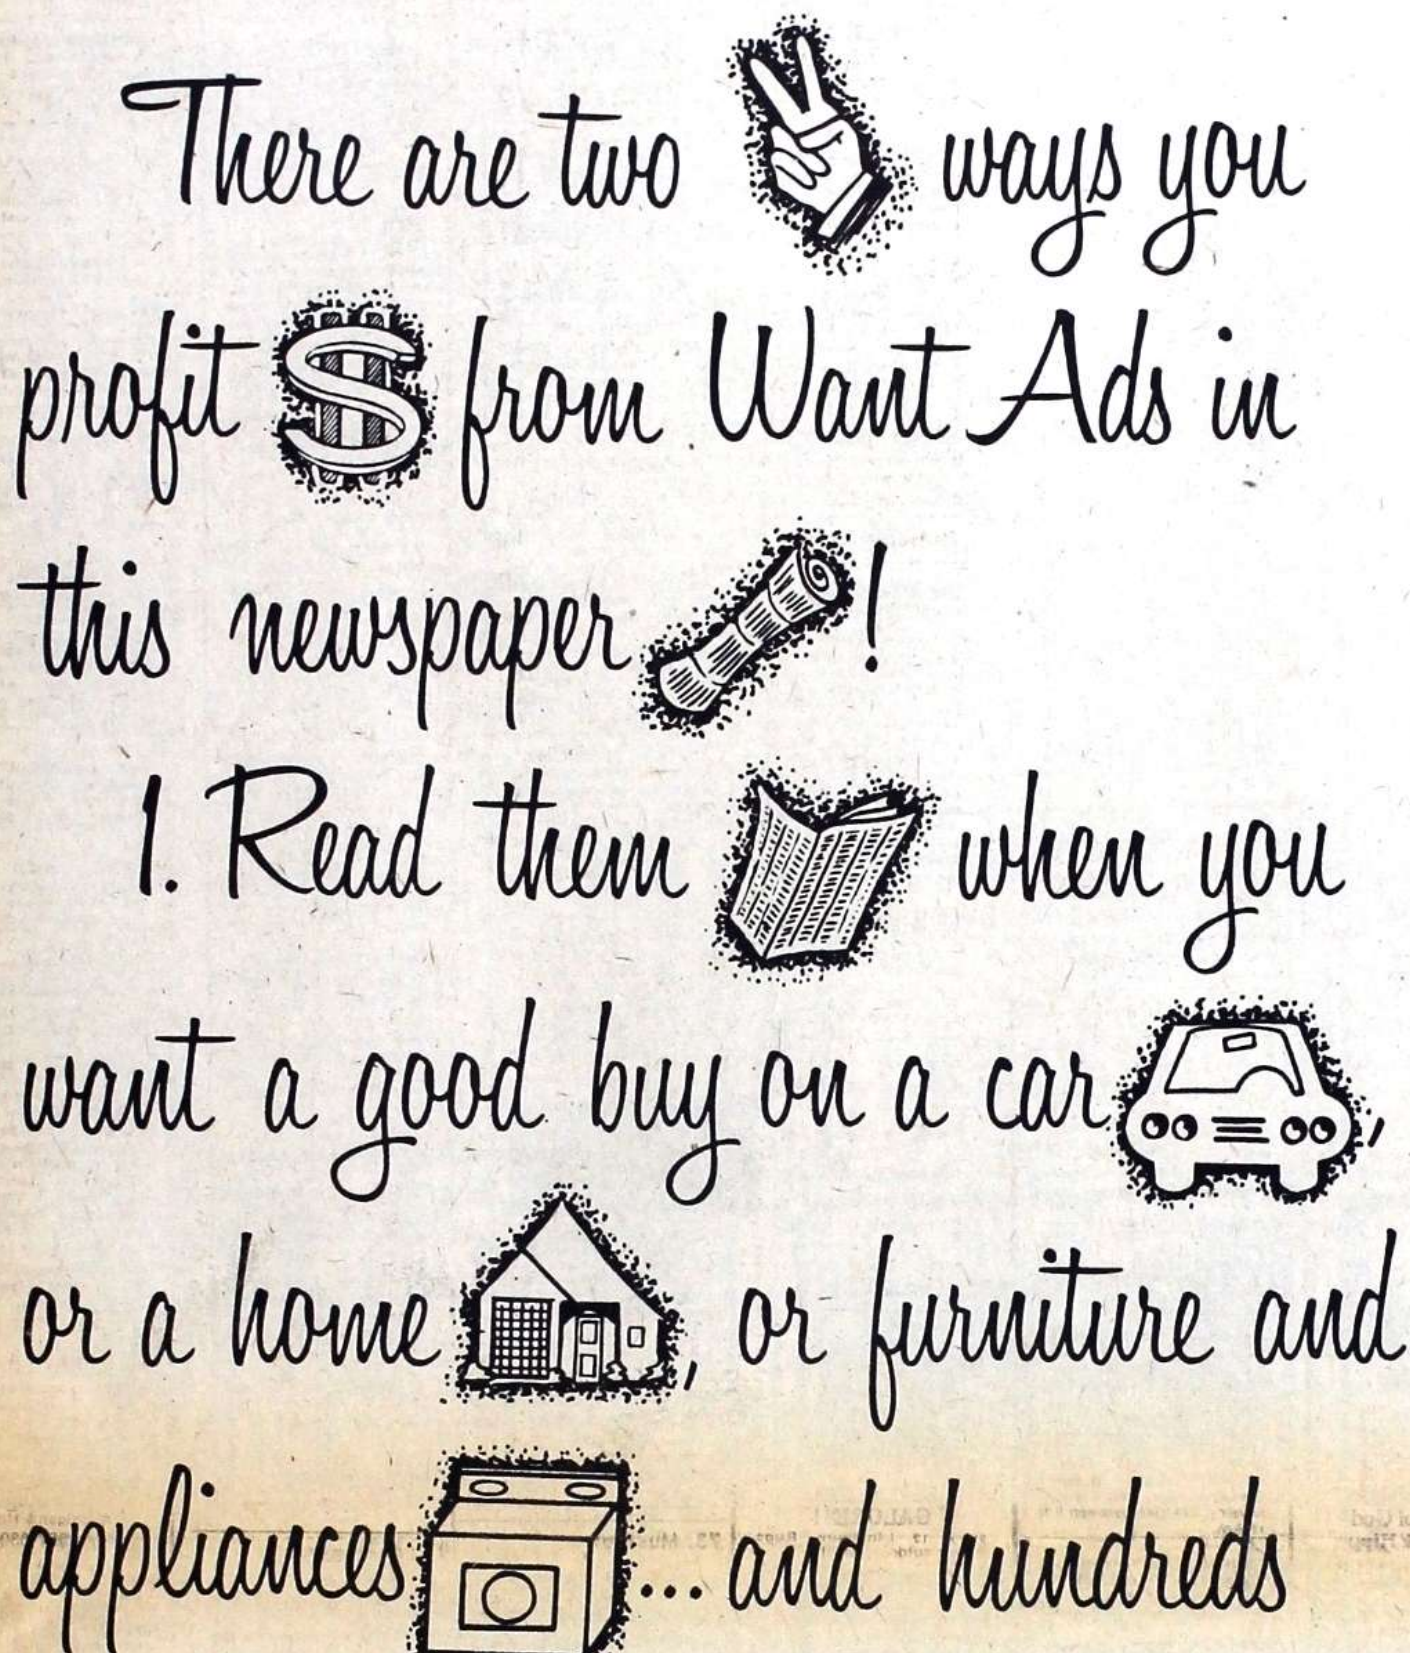 There are two ways you
profit $ from Want Ads in
this newspaper!
1. Read them when you
want a good buy on a car,
or a home, or furniture and
appliances... and hundreds